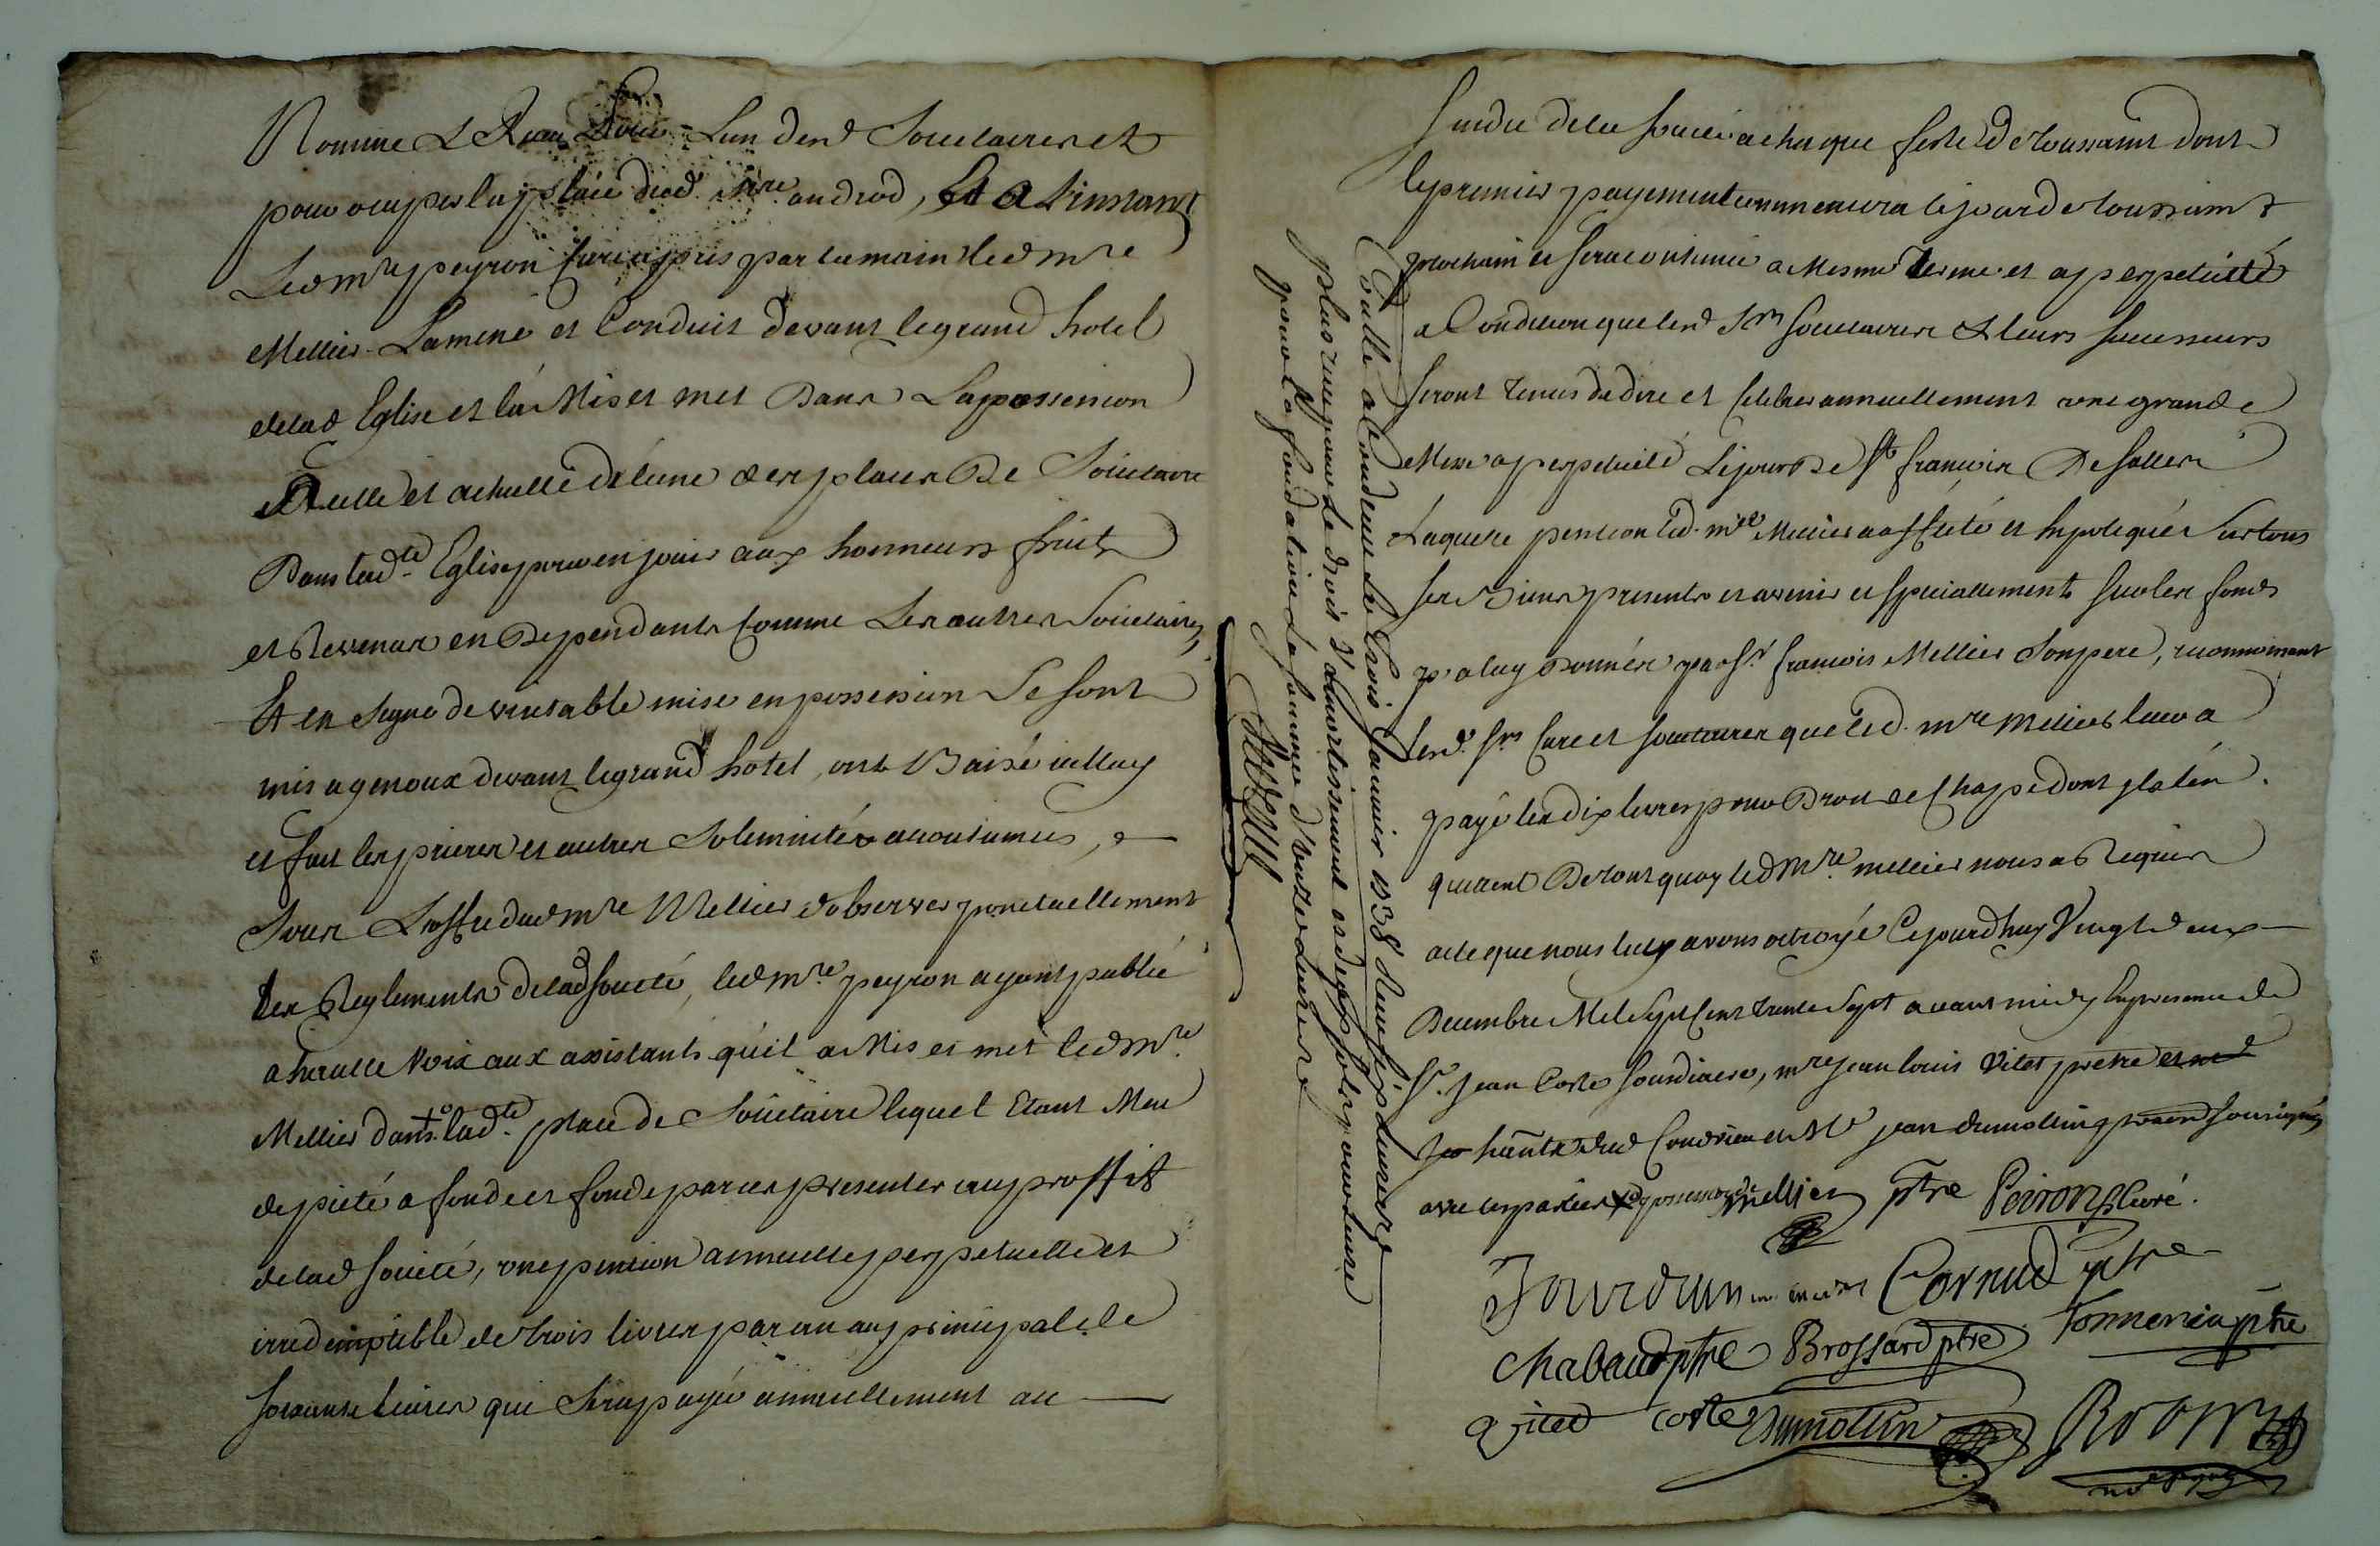 Nomme Lun desd Societaires et
pour occuper la place dud mre androd, Et a Linstant
Led mre peyron Curé a pris par la main led mre
Mellier Lamené et Conduit devant le grand hotel
delad Eglise et la Mis et met Dans La possession
Reelle et actuelle de lune des places De Societaire
Dans lad.te Eglise pour en jouir aux honneurs fruits
et Revenus en Dependants Comme Les autres Societaires
Et en Signe de veritable mise en possession Se sont
mis a genoux devant le grand hotel, ont Baisé icelluy
et fait les prieres et autres Solemnités accoutumées,
Sous Loffre dud mre Mellier dobserver ponctuellement
Les Reglements delad Societé, led mre peyron ayant publié
a haulte Voix aux assistants qu'il a Mis et met led mre
Mellier dans lad.te place de Societaire lequel Etant Meu
de pieté a fondé et fonde par ces presentes au proffit
delad Societé, une pension annuelle perpetuelle et
irredemptible de trois livres par an au principal de
soixante Livres qui Sera payée annuellement au
Sindic de la Societé a chaque feste de toussaint dont
le premier payement commencera le jour de toussaint
prochain et sera continué a Mesme terme et a perpetuitté
a Condition que lesd Srs Societaires & leurs successeurs
seront tenus de dire et Celebrer annuellement une grande
Messe a perpetuité Le jour de St francois De Salles
Laquelle pension led. mre Mellier a affecté et hypotequé Sur tous
ses Biens presents et avenir et specialement sur les fonds
a luy Donnés par Sr francois Mellier Son pere, reconnoissant
lesd. Srs Curé et Societaires que led. mre Mellier leur a
payé les dix livres pour Droit de Chape dont
quittent De tout quoy led Mre mellier nous a Requis
acte que nous luy avons octroyé Cejourdhuy Vingt deux
Decembre Mil Sept Cent trente Sept avant midy En presence de
Sr. Jean Coste Soudiacre, mre jean louis Vitet pretre
habitants dud Condrieu et Mre jean dumollin soussignés
avec les parties Mellier ptre Peiron Curé.
Jourdan Cornud ptre
Chabaud ptre Brossard ptre Tonnerieu ptre
Vitet Coste Dumollin
Controllé a Condrieu Le trois Janvier 1738 Receu six livres
plus receu pour Le droit d'amortissement
pour la fondation La somme d'onze Livres